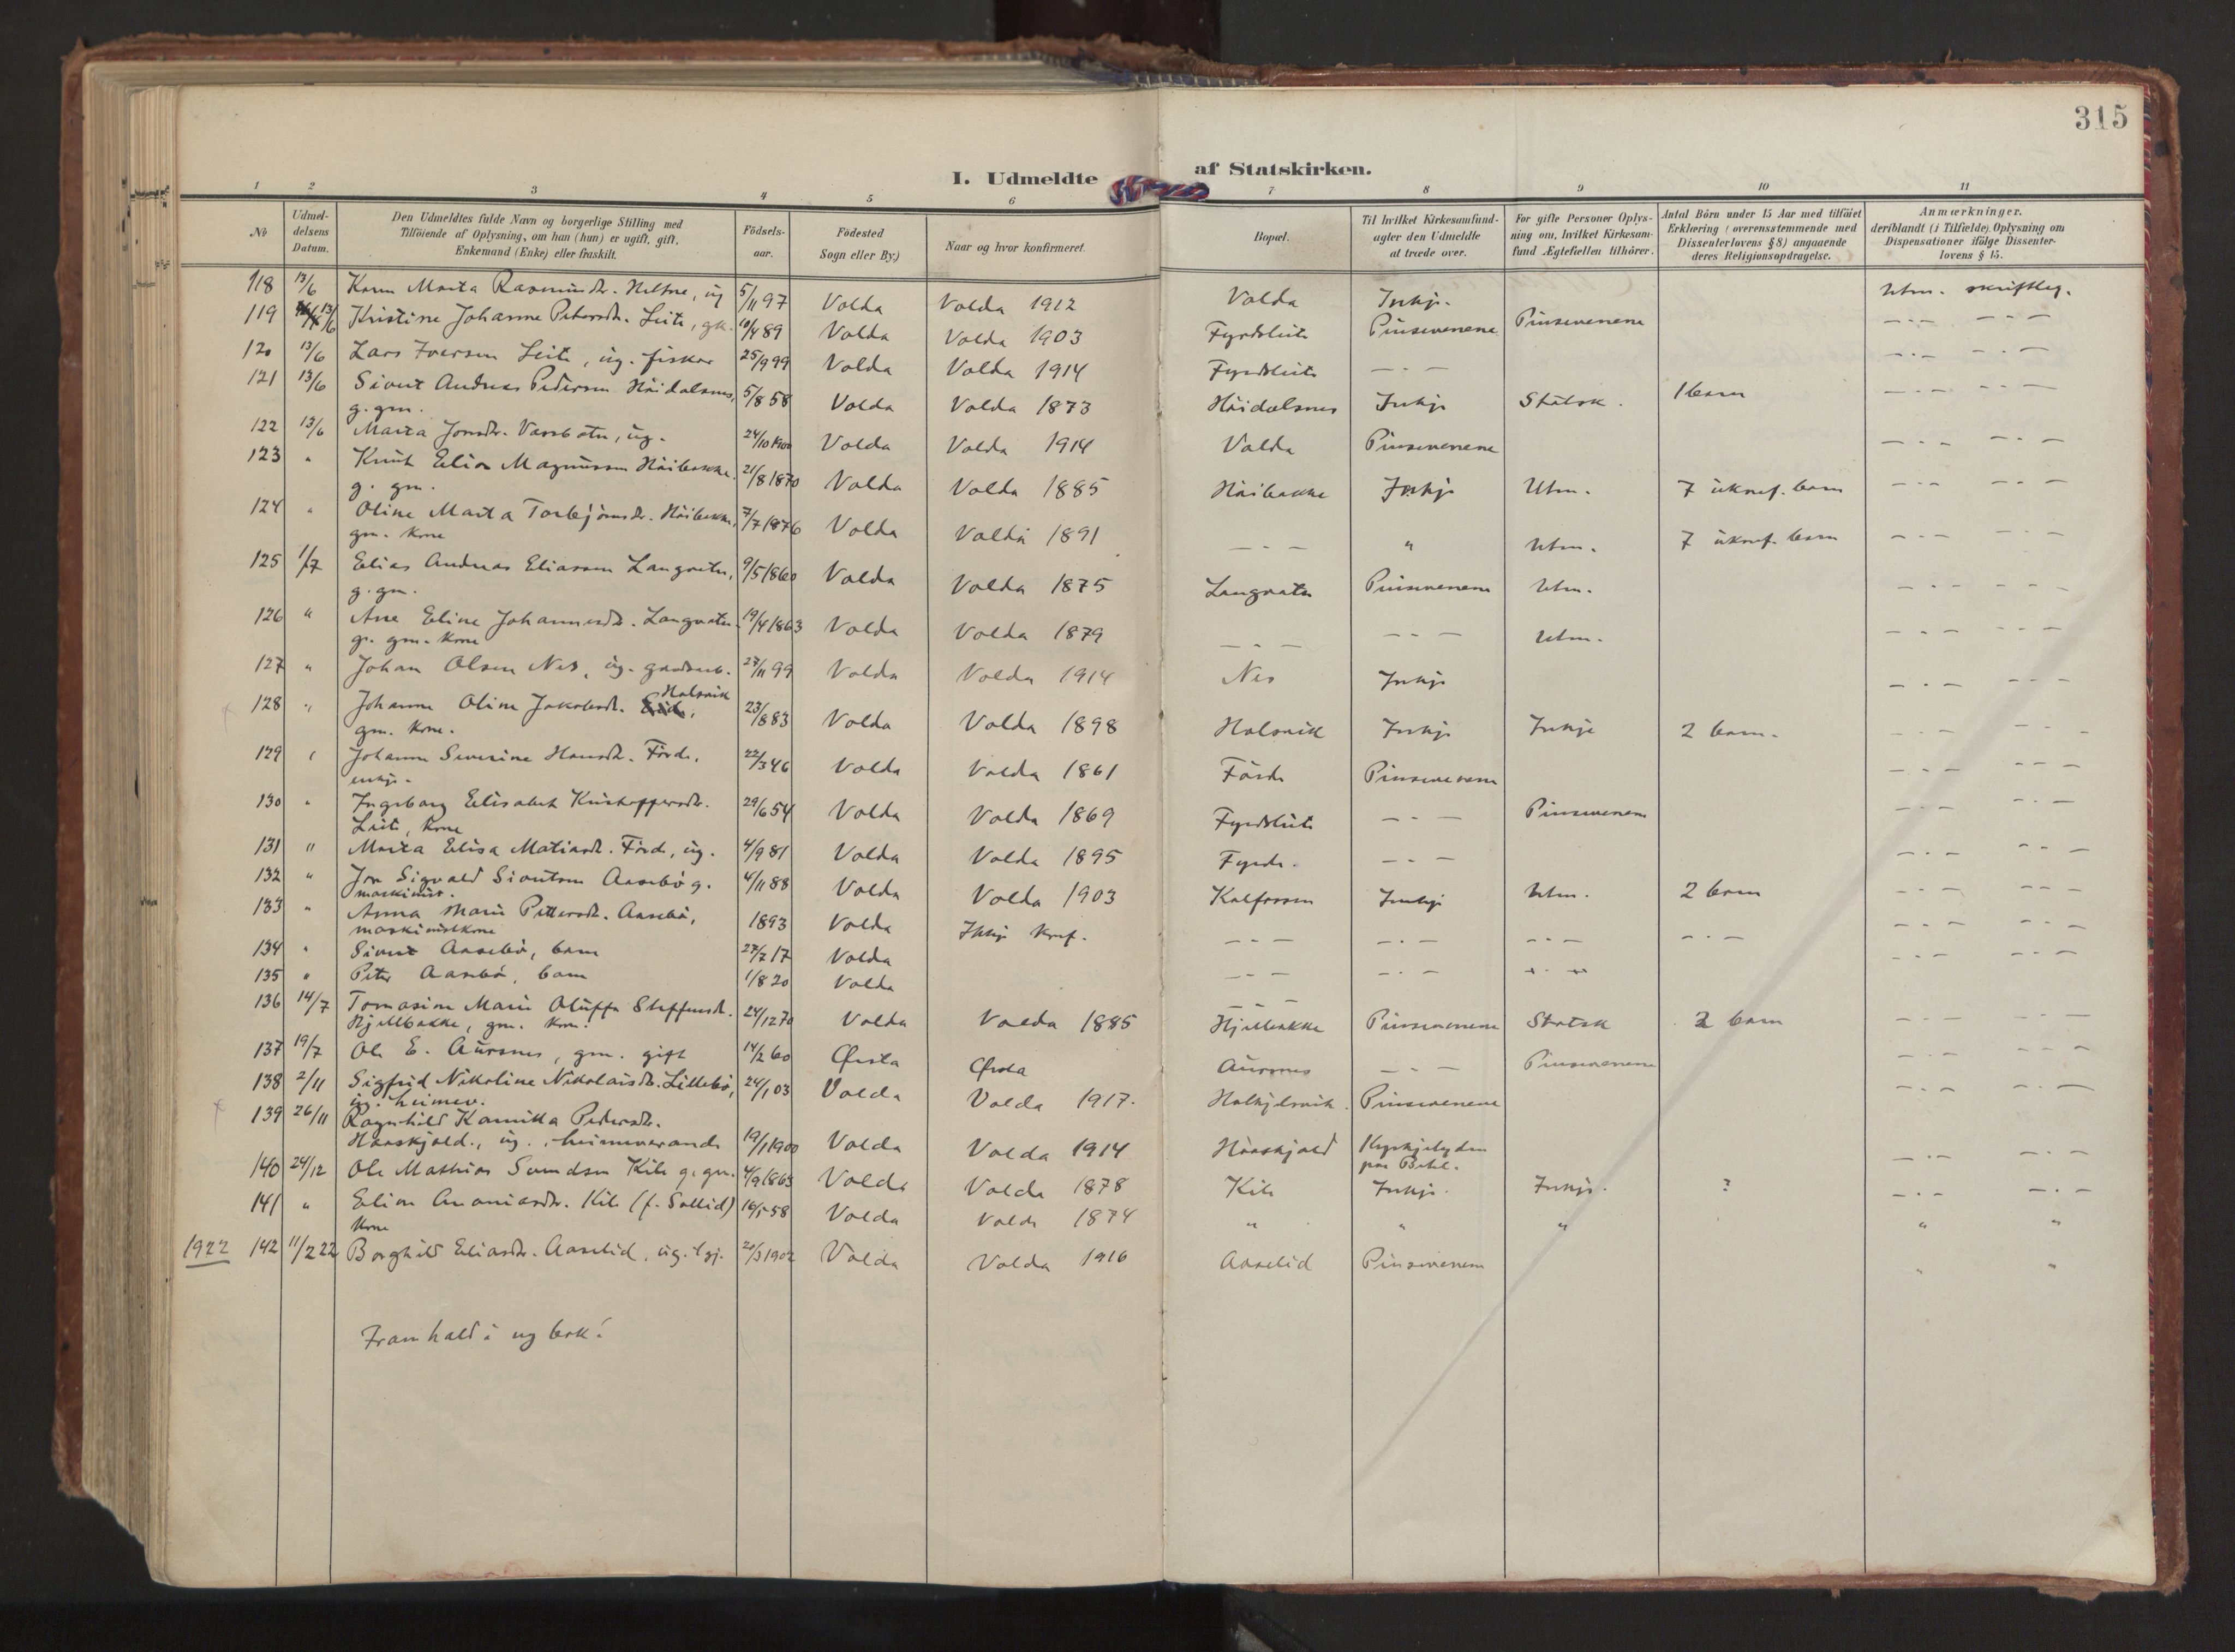 315
I. Udmeldte af Statskirken.
1 2 3 4 5 6 7 8 9 10 11
No
Udmeldelsens Datum.
Den Udmeldtes fulde Navn og borgerlige Stilling med
Tilföiende af Oplysning, om han (hun) er ugift, gift,
Enkemand (Enke) eller fraskilt.
Födselsaar.
Födested
Sogn eller By.)
Naar og hvor konfirmeret.
Bopæl.
Til hvilket Kirkesamfund
agter den Udmeldte
at træde over.
For gifte Personer Oplysning
om, hvilket Kirkesamfund
Ægtefællen tilhörer.
Antal Börn under 15 Aar med tilföiet
Erklæring (overensstemmende med
Dissenterlovens § 8) angaaende
deres Religionsopdragelse.
Anmærkninger,
deriblandt (i Tilfælde) Oplysning om
Dispensationer ifölge Dissenterlovens § 15.
118 13/6 Karen Marta Rasmusdr. Heltne, ug 5/11 97 Volda Volda 1912 Volda Inkje. Utm. skriftleg.
119 13/6 Kristine Johanne Petersdr. Leite, gk. 10/4 89 Volda Volda 1903 Fyrdsleite Pinsevenene Pinsevenene — " — — " —
120 13/6 Lars Iversen Leite, ug. fiskar 25/9 99 Volda Volda 1914 Fyrdsleite — " — — " — — " —
121 13/6 Sivert Andreas Pedersen Höidalsnes, 5/8 58 Volda Volda 1873 Höidalsnes Inkje Statsk. 1 barn — " — — " —
g. gm.
122 13/6 Marta Jonsdr. Vassbotn, ug. 24/10 1900 Volda Volda 1914 Volda Pinsevenene — " — — " —
123 " Knut Elias Magnussen Höibakke. 21/8 1870 Volda Volda 1885 Höibakke Inkje Utm. 7 ukonf. barn — " — — " —
g. gm.
124 " Oline Marta Torbjörnsdr. Höibakke, 7/7 1876 Volda Volda 1891 — " — " Utm. 7 ukonf. barn — " — — " —
gm. kone
125 1/7 Elias Andreas Eliassen Langvatn, 9/5 1860 Volda Volda 1875 Langvatn Pinsevenene Utm. — " — — " —
g. gm.
126 " Ane Eline Johannesdr. Langvatn. 19/4 1863 Volda Volda 1879 — " — — " — Utm. — " — — " —
g. gm. kone
127 " Johan Olsen Nes, ug. gardsarb. 27/11 99 Volda Volda 1914 Nes Inkje — " — — " —
128 " Johanne Oline Jakobsdr. Halsvik 23/8 83 Volda Volda 1898 Halsvik Inkje Inkje 2 barn. — " —
gm. kone.
129 " Johanne Severine Hansdr. Förde, 22/3 46 Volda Volda 1861 Förde Pinsevenene — " — — " —
enkje.
130 " Ingeborg Elisabet Kristoffersdr. 29/6 54 Volda Volda 1869 Fyrdsleite — " — Pinsevenene — " — — " —
Leite, kone
131 " Marta Elisa Matiasdr. Förde, ug. 4/9 81 Volda Volda 1895 Fyrde. — " — — " — — " —
132 " Jon Sigvald Sivertsen Aasebö g. 4/11 88 Volda Volda 1903 Kalfossen Inkje Utm. 2 barn — " — — " —
maskinist.
133 " Anna Marie Pettersdr. Aasebö, 1893 Volda Ikkje konf. — " — — " — — " — — " — — " — — " —
maskinistkone
134 " Sivert Aasebö, barn 27/7 17 Volda — " — — " — — " — — " — — " —
135 " Peter Aasebö, barn 1/8 20 Volda
136 14/7 Tomasine Marie Oluffa Steffensdr. 24/12 70 Volda Volda 1885 Hjellbakke Pinsevenene Statsk 2 barn — " — — " —
Hjellbakke, gm. kone.
137 19/7 Ole E. Aursnes, gm. gift 14/2 60 Ørsta Ørsta Aursnes — " — Pinsevenene — " — — " —
138 2/11 Sigfrid Nikoline Nikolaisdr. Lillebö, 24/1 03 Volda Volda 1917. Halkjelsvik. Pinsevenene — " — — " —
ug. heimev.
139 26/11 Ragnhild Kamilla Pedersdr.
Haaskjold., ug., heimeverande 19/1 1900 Volda Volda 1914 Haaskjold Kyrkjelyden — " — — " —
paa Betel.
140 24/12 Ole Mathias Svendsen Kile g. gm. 4/9 1863 Volda Volda 1878 Kile Inkje. Inkje. ? — " — — " —
141 " Eline Ananiasdr. Kile (f. Sollid) 16/5 58 Volda Volda 1874 " " " " "
kone
1922 142 11/2 22 Borghild Eliasdr. Aaselid, ug. 20/3 1902 Volda Volda 1916 Aaselid Pinsevenene " "
Framhald i ny bok!